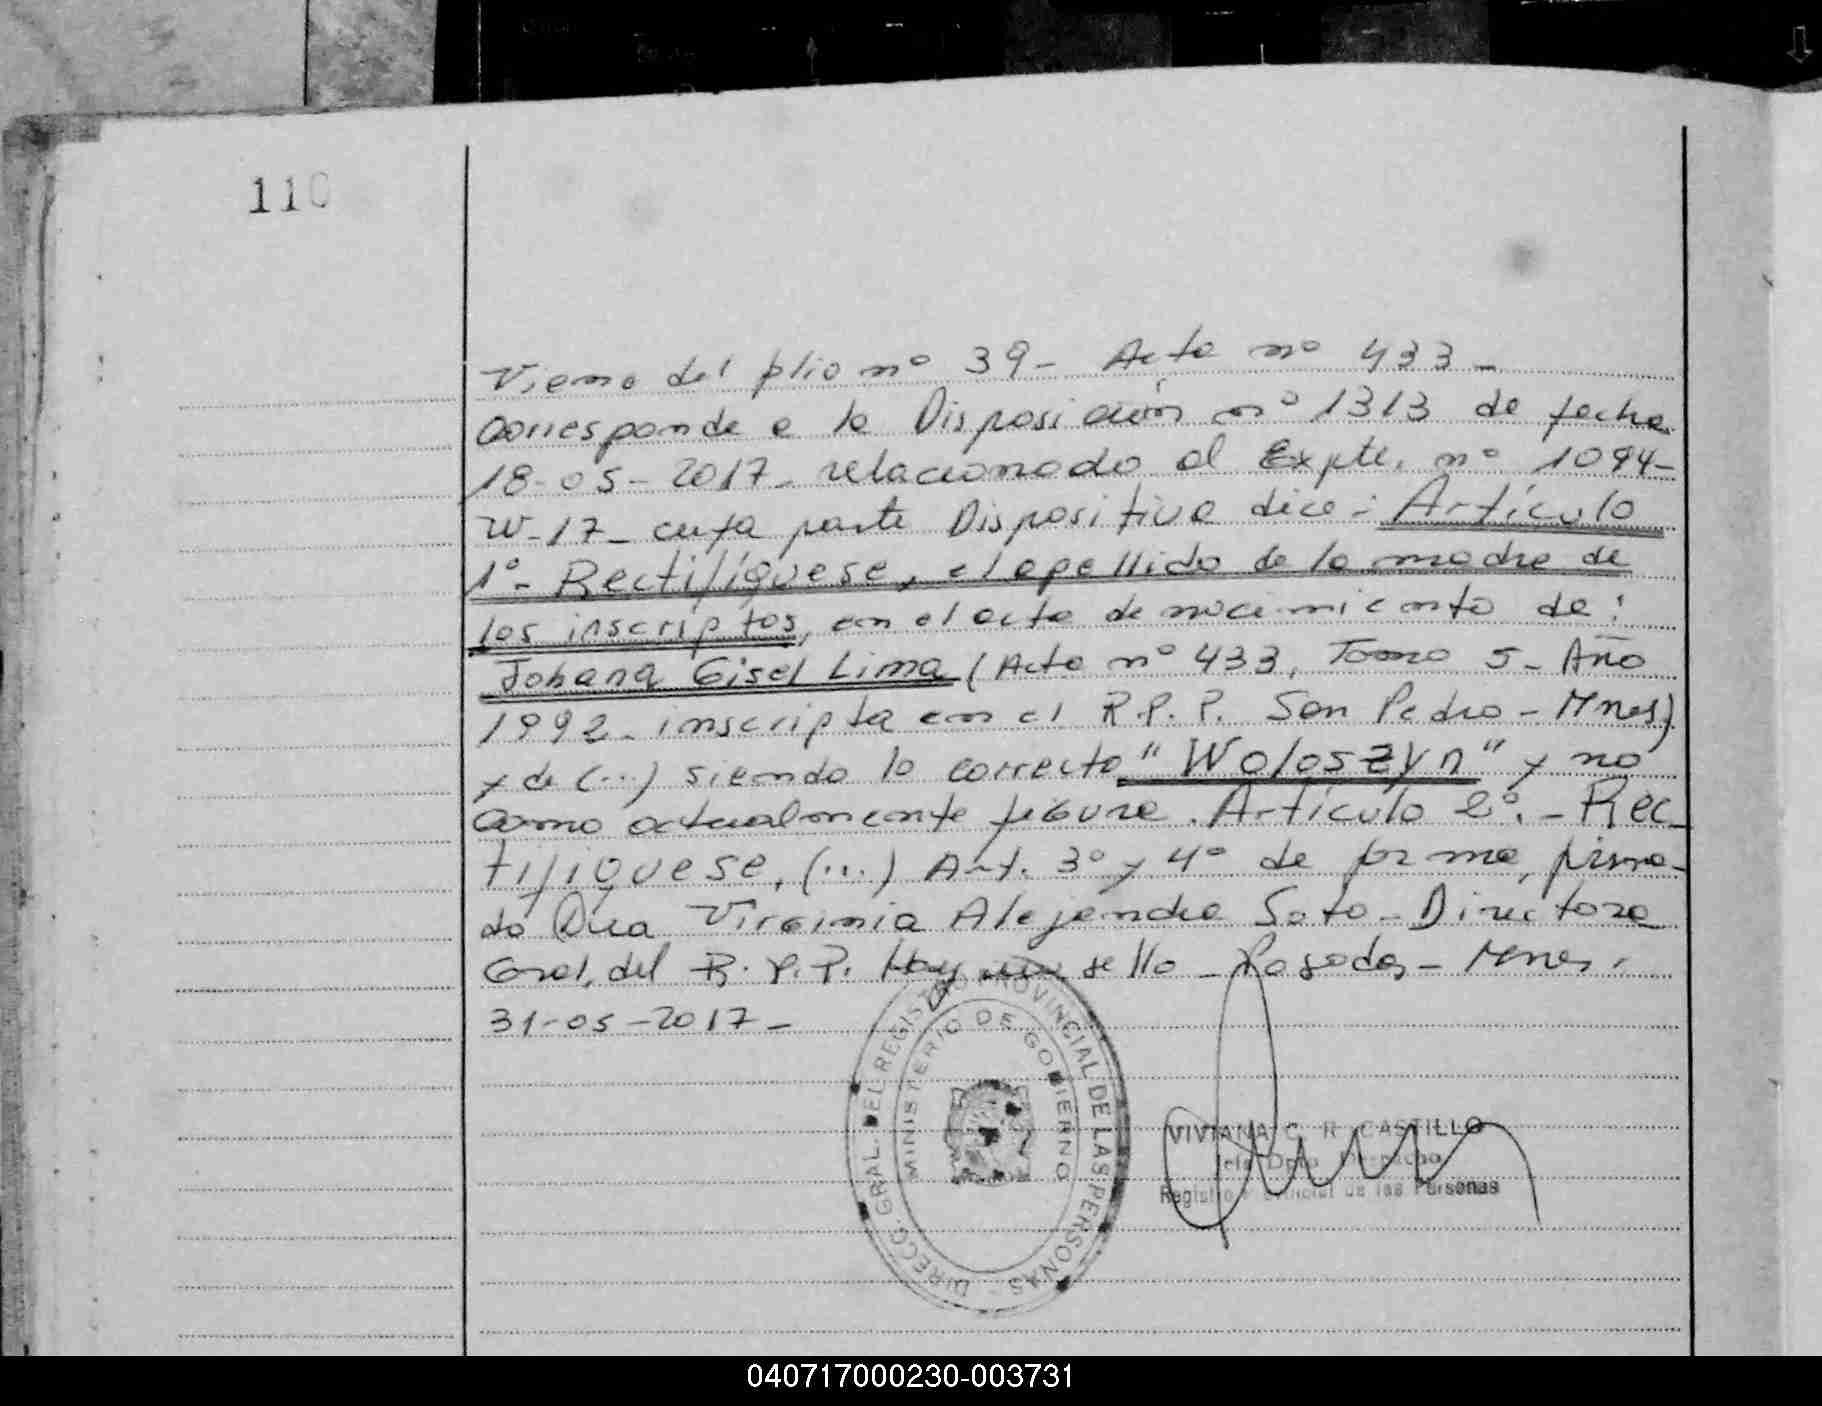 110
Viene del folio nº 39- Acta nº 433-
Corresponde a la Disposición nº 1313 de fecha
18-05-2017- relacionado al Expte. nº 1094-
W-17- cuya parte Dispositiva dice: Artículo
1º- Rectifíquese, el apellido de la madre de
los inscriptos, en el acta de nacimiento de:
Johana Gisel Lima (Acta nº 433, Tomo 5- Año
1992- inscripta en el R.P.P. San Pedro-Mnes)
y de (...) siendo lo correcto "Woloszyn" y no
como actualmente figura. Artículo 2º.- Rec-
tifíquese, (...) Art. 3º y 4º de forma, firma-
do Dra Virginia Alejandra Soto- Directora
Gral, del R.P.P. Hay un sello- Posadas- Mnes,
31-05-2017-
DIRECC. GRAL. DEL REGISTRO PROVINCIAL DE LAS PERSONAS -
MINISTERIO DE GOBIERNO
VIVIANA C. R. CASTILLO
Jefe Dpto. Despacho
Registro Provincial de las Personas
040717000230-003731